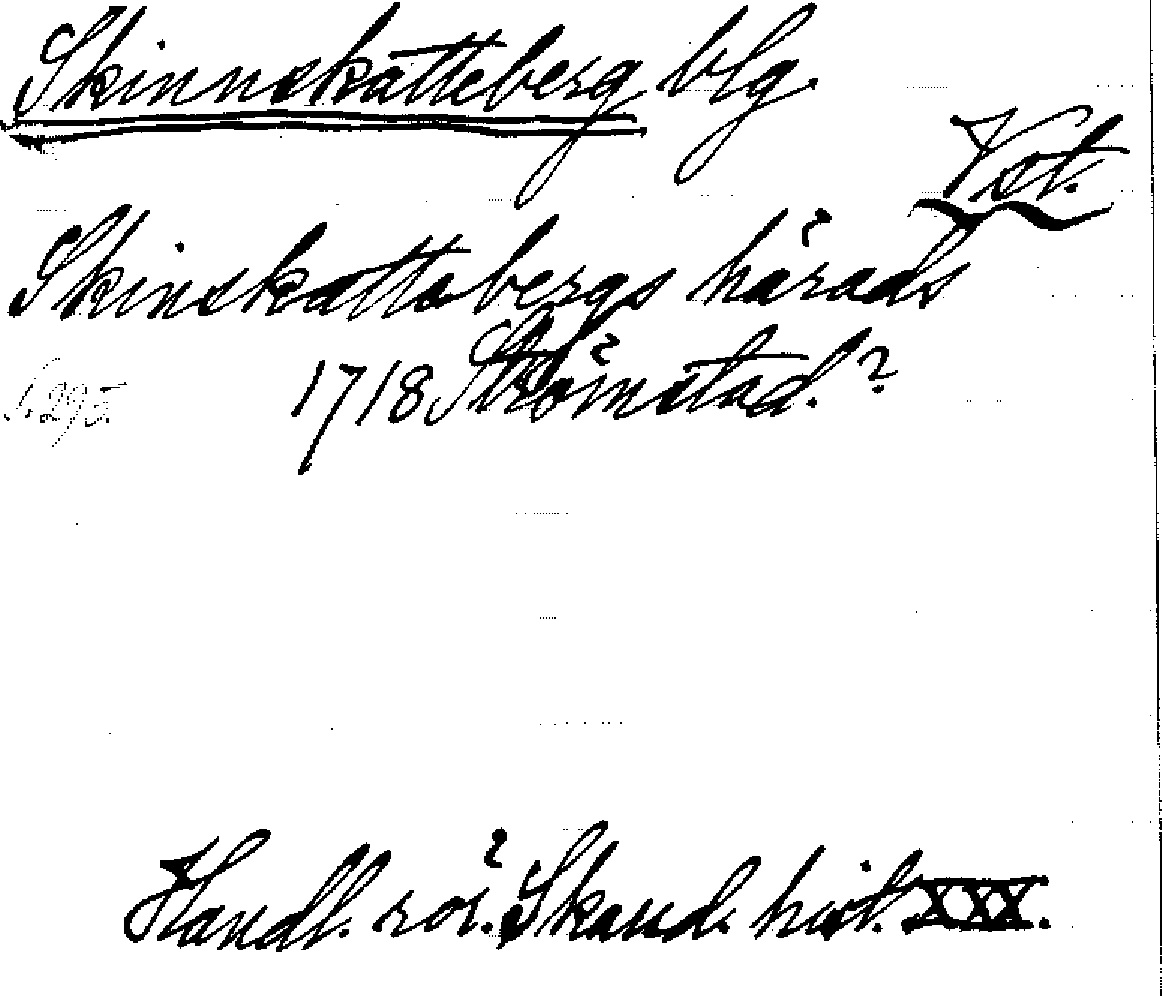 Skinnskatteberg blg.
Vst.
Skinskattebergs härads
S. 295. 1718 Strömstad.?
Handl. rör. Skand. hist. XXX.